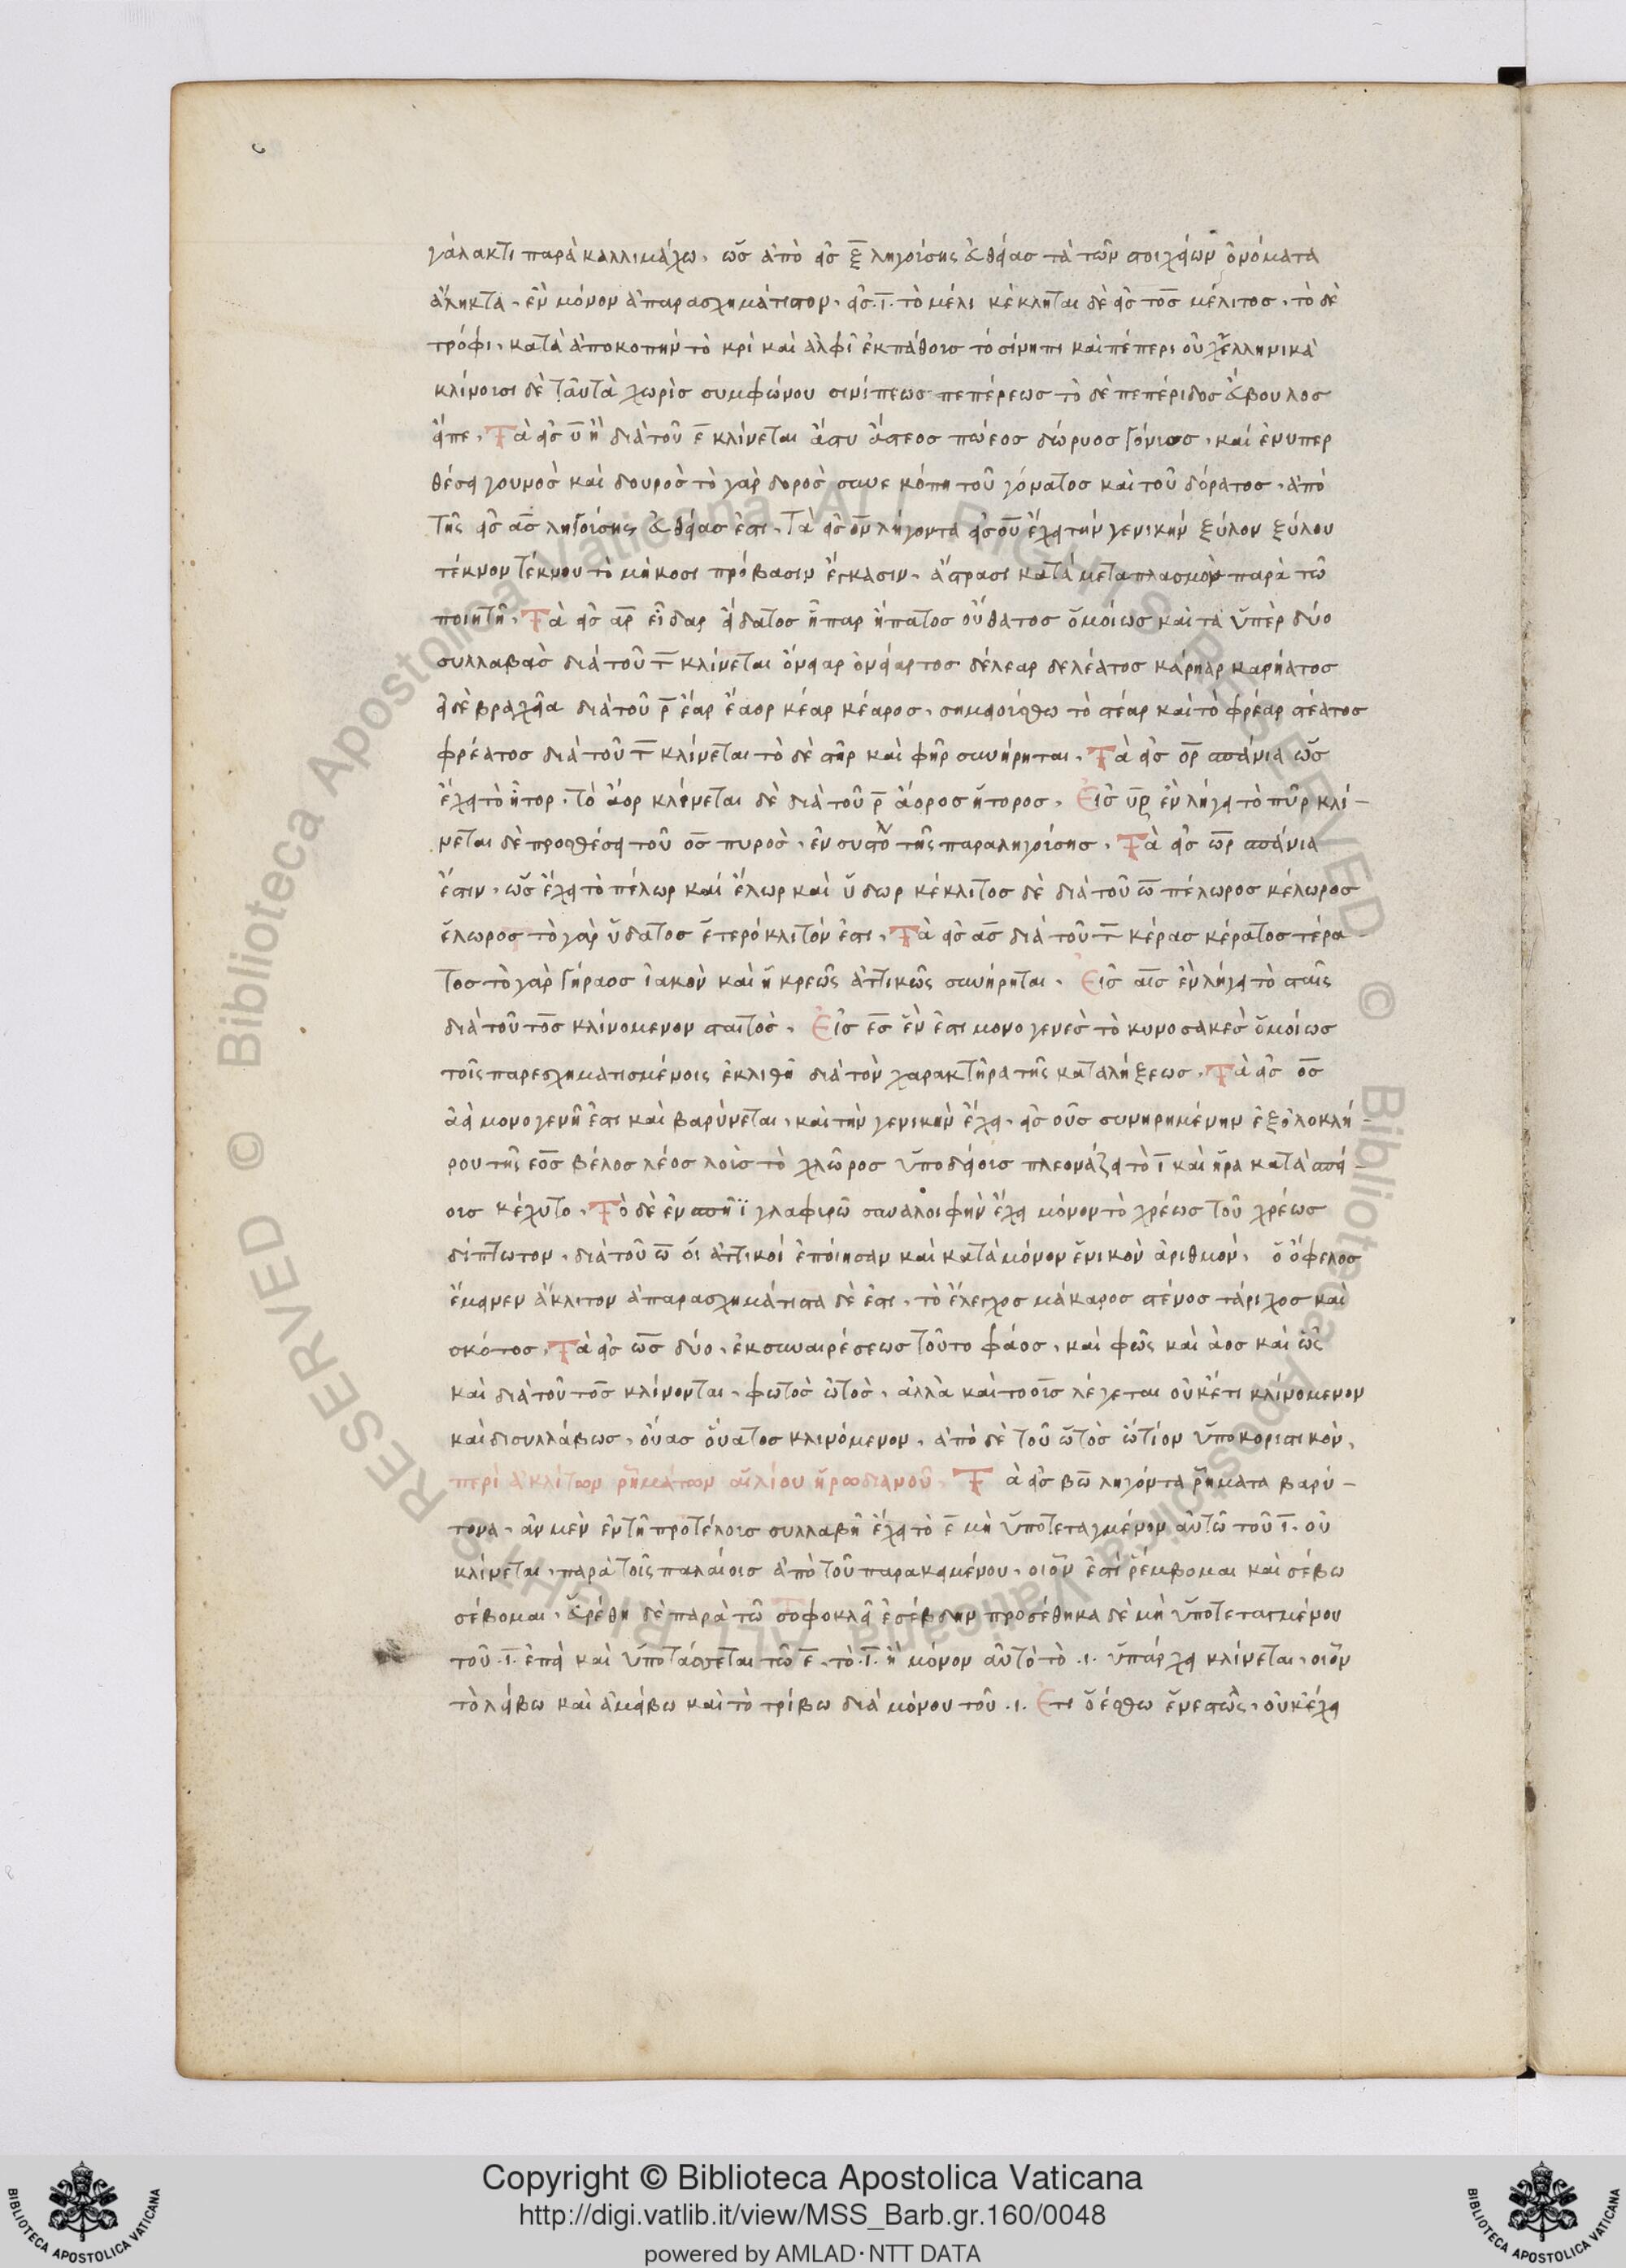 γάλακτι παρὰ καλλιμάχω. ὡς ἀπὸ εἰς ξ̅ ληγούσης εὐθείας τὰ τῶν στοιχείων ὀνόματα
ἄληκτα. ἓν μόνον ἀπαρασχημάτιστον. εἰς .ι̅. τὸ μέλι κέκληται δὲ εἰς τος μέλιτος. τὸ δὲ
τρόφι. κατὰ ἀποκοπὴν τὸ κρὶ καὶ ἀλφὶ ἐκπάθους τό σίνηπι καὶ πέπερι οὐχ ἑλληνικὰ
κλίνουσι δὲ ταῦτὰ χωρὶς συμφώνου σινίπεως πεπέρεως τὸ δὲ πεπέριδος εὔβουλος
εἶπε. Τὰ εἰς υ̅ ἢ διὰ τοῦ ε̅ κλίνεται ἄστυ ἄστεος πώεος δώρυος γόνυος. καὶ ἐνυπερ
θέσει γουνὸς καὶ δουρὸς τὸ γὰρ δορὸς συνεκόπη τοῦ γόνατος καὶ τοῦ δόρατος. ἀπὸ
τῆς εἰς ας ληγούσης εὐθείας ἐστι. Τὰ εἰς ον λήγοντα εἰς ου ἔχει τὴν γενικήν ξύλον ξύλου
τέκνον τέκνου τὸ μήκοσι πρόβασιν ἔγκασιν. ἄστρασι κατὰ μεταπλασμὸν παρὰ τῶ
ποιητῆ. Τὰ εἰς αρ εἶδαρ εἴδατος ἧπαρ ἥπατος οὔθατος ὁμοίως καὶ τὰ ὑπὲρ δύο
συλλαβὰς διὰ τοῦ τ̅ κλίνεται ὄνειαρ ὀνείαρτος δέλεαρ δελέατος κάρηαρ καρήατος
εἰ δὲ βραχεῖα διὰ τοῦ ρ̅ ἔαρ ἔαορ κέαρ κέαρος. σημειούσθω τὸ στέαρ καὶ τὸ φρέαρ στέατος
φρέατος διὰ τοῦ τ̅ κλίνεται τὸ δὲ στῆρ καὶ φῆρ συνήρηται. Τὰ εἰς ορ σπάνια ὡς
ἔχει τὸ ἦτορ. τὸ ἄορ κλίνεται δὲ διὰ τοῦ ρ̅ ἄορος ἥτορος. Εἰς υρ ἓν λήγει τὸ πῦρ κλί-
νεται δὲ προσθέσει τοῦ ος πυρὸς. ἐν συστολῆ τῆς παραληγούσης. Τὰ εἰς ωρ σπάνια
ἐστιν. ὡς ἔχει τὸ πέλωρ καὶ ἕλωρ καὶ ὕδωρ κέκλιτος δὲ διὰ τοῦ ω̅ πέλωρος κέλωρος
ἕλωρος τὸ γὰρ ὕδατος ἑτερόκλιτόν ἐστι. Τὰ εἰς ας διὰ τοῦ τ̅ κέρας κέρατος τέρα-
τος τὸ γὰρ γήραος ἰακὸν καὶ ἡ κρεῶς ἀττικῶς συνήρηται. Εἰς αις ἓν λήγει τὸ σταὶς
διὰ τοῦ τος κλίνομενον σταιτὸς. Εἰς ες ἕν ἐστι μονογενὲς τὸ κυνοσακὲς ὁμοίως
τοῖς παρεσχηματισμένοις ἐκλιθῆ διὰ τὸν χαρακτῆρα τῆς καταλήξεως. Τὰ εἰς ος
ἀεὶ μονογενῆ ἐστι καὶ βαρύνεται. καὶ τὴν γενικὴν ἔχει. εἰς ους συνηρημένην ἐξ ὁλοκλή-
ρου τῆς εος βέλος λέος λοὶς τὸ χλῶρος ὑποδείους πλεονάζει τὸ ι̅ καὶ ἥρα κατὰ σπεί-
ους κέχυτο. Τὸ δὲ ἐν σπῆϊ γλαφιρῶ συναλοιφὴν ἔχει μόνον τὸ χρέως τοῦ χρέως
δίπτωτον. διὰ τοῦ ω̅ οἱ ἀττικοί ἐποίησαν καὶ κατὰ μόνον ἑνικὸν ἀριθμόν. ὃ ὄφελος
ἔμεινεν ἄκλιτον ἀπαρασχημάτιστα δὲ ἐστι. τὸ ἔλεγχος μάκαρος στένος τάριχος καὶ
σκότος. Τὰ εἰς ως δύο. ἐκ συναιρέσεως τοῦτο φάος. καὶ φῶς καὶ ἀος καὶ ὦς
καὶ διὰ τοῦ τος κλίνονται. φωτὸς ὠτὸς. ἀλλὰ καὶ το οῦς λέγεται οὐκέτι κλίνομενον
καὶ δισυλλάβως. οὖας οὔατος κλινόμενον. ἀπὸ δὲ τοῦ ὠτὸς ὠτίον ὑποκοριστικὸν.
περὶ ἀκλίτων ῥημάτων αἰλίου ἡρωδιανοῦ. Τὰ εἰς βω ληγόντα ῥήματα βαρύ-
τονα. ἂν μὲν ἐν τῆ προτέλους συλλαβῆ ἔχει τὸ ε̅ μὴ ὑποτεταγμένον αὐτῶ τοῦ ι̅. οὐ
κλίνεται. παρὰ τοῖς παλαιοῖς ἀπὸ τοῦ παρακειμένου. οιον ἐστι ῥέμβομαι καὶ σέβω
σέβομαι. εὑρέθη δὲ παρὰ τῶ σοφοκλεῖ ἐσέβδην προσέθηκα δὲ μὴ ὑποτεταγμένου
τοῦ .ι̅. ἐπεὶ καὶ ὑποτάσσεται τῶ ε̅. τὸ .ι̅. ἢ μόνον αὐτὸ τὸ .ι. ὑπάρχει κλίνεται. οιον
τὸ λείβω καὶ ἀμείβω καὶ τὸ τρίβω διὰ μόνου τοῦ .ι. Ετι ὁ ἔσθω ἐνεστὼς. οὐκ ἔχει
Copyright © Biblioteca Apostolica Vaticana
http://digi.vatlib.it/view/MSS_Barb.gr.160/0048
powered by AMLAD·NTT DATA